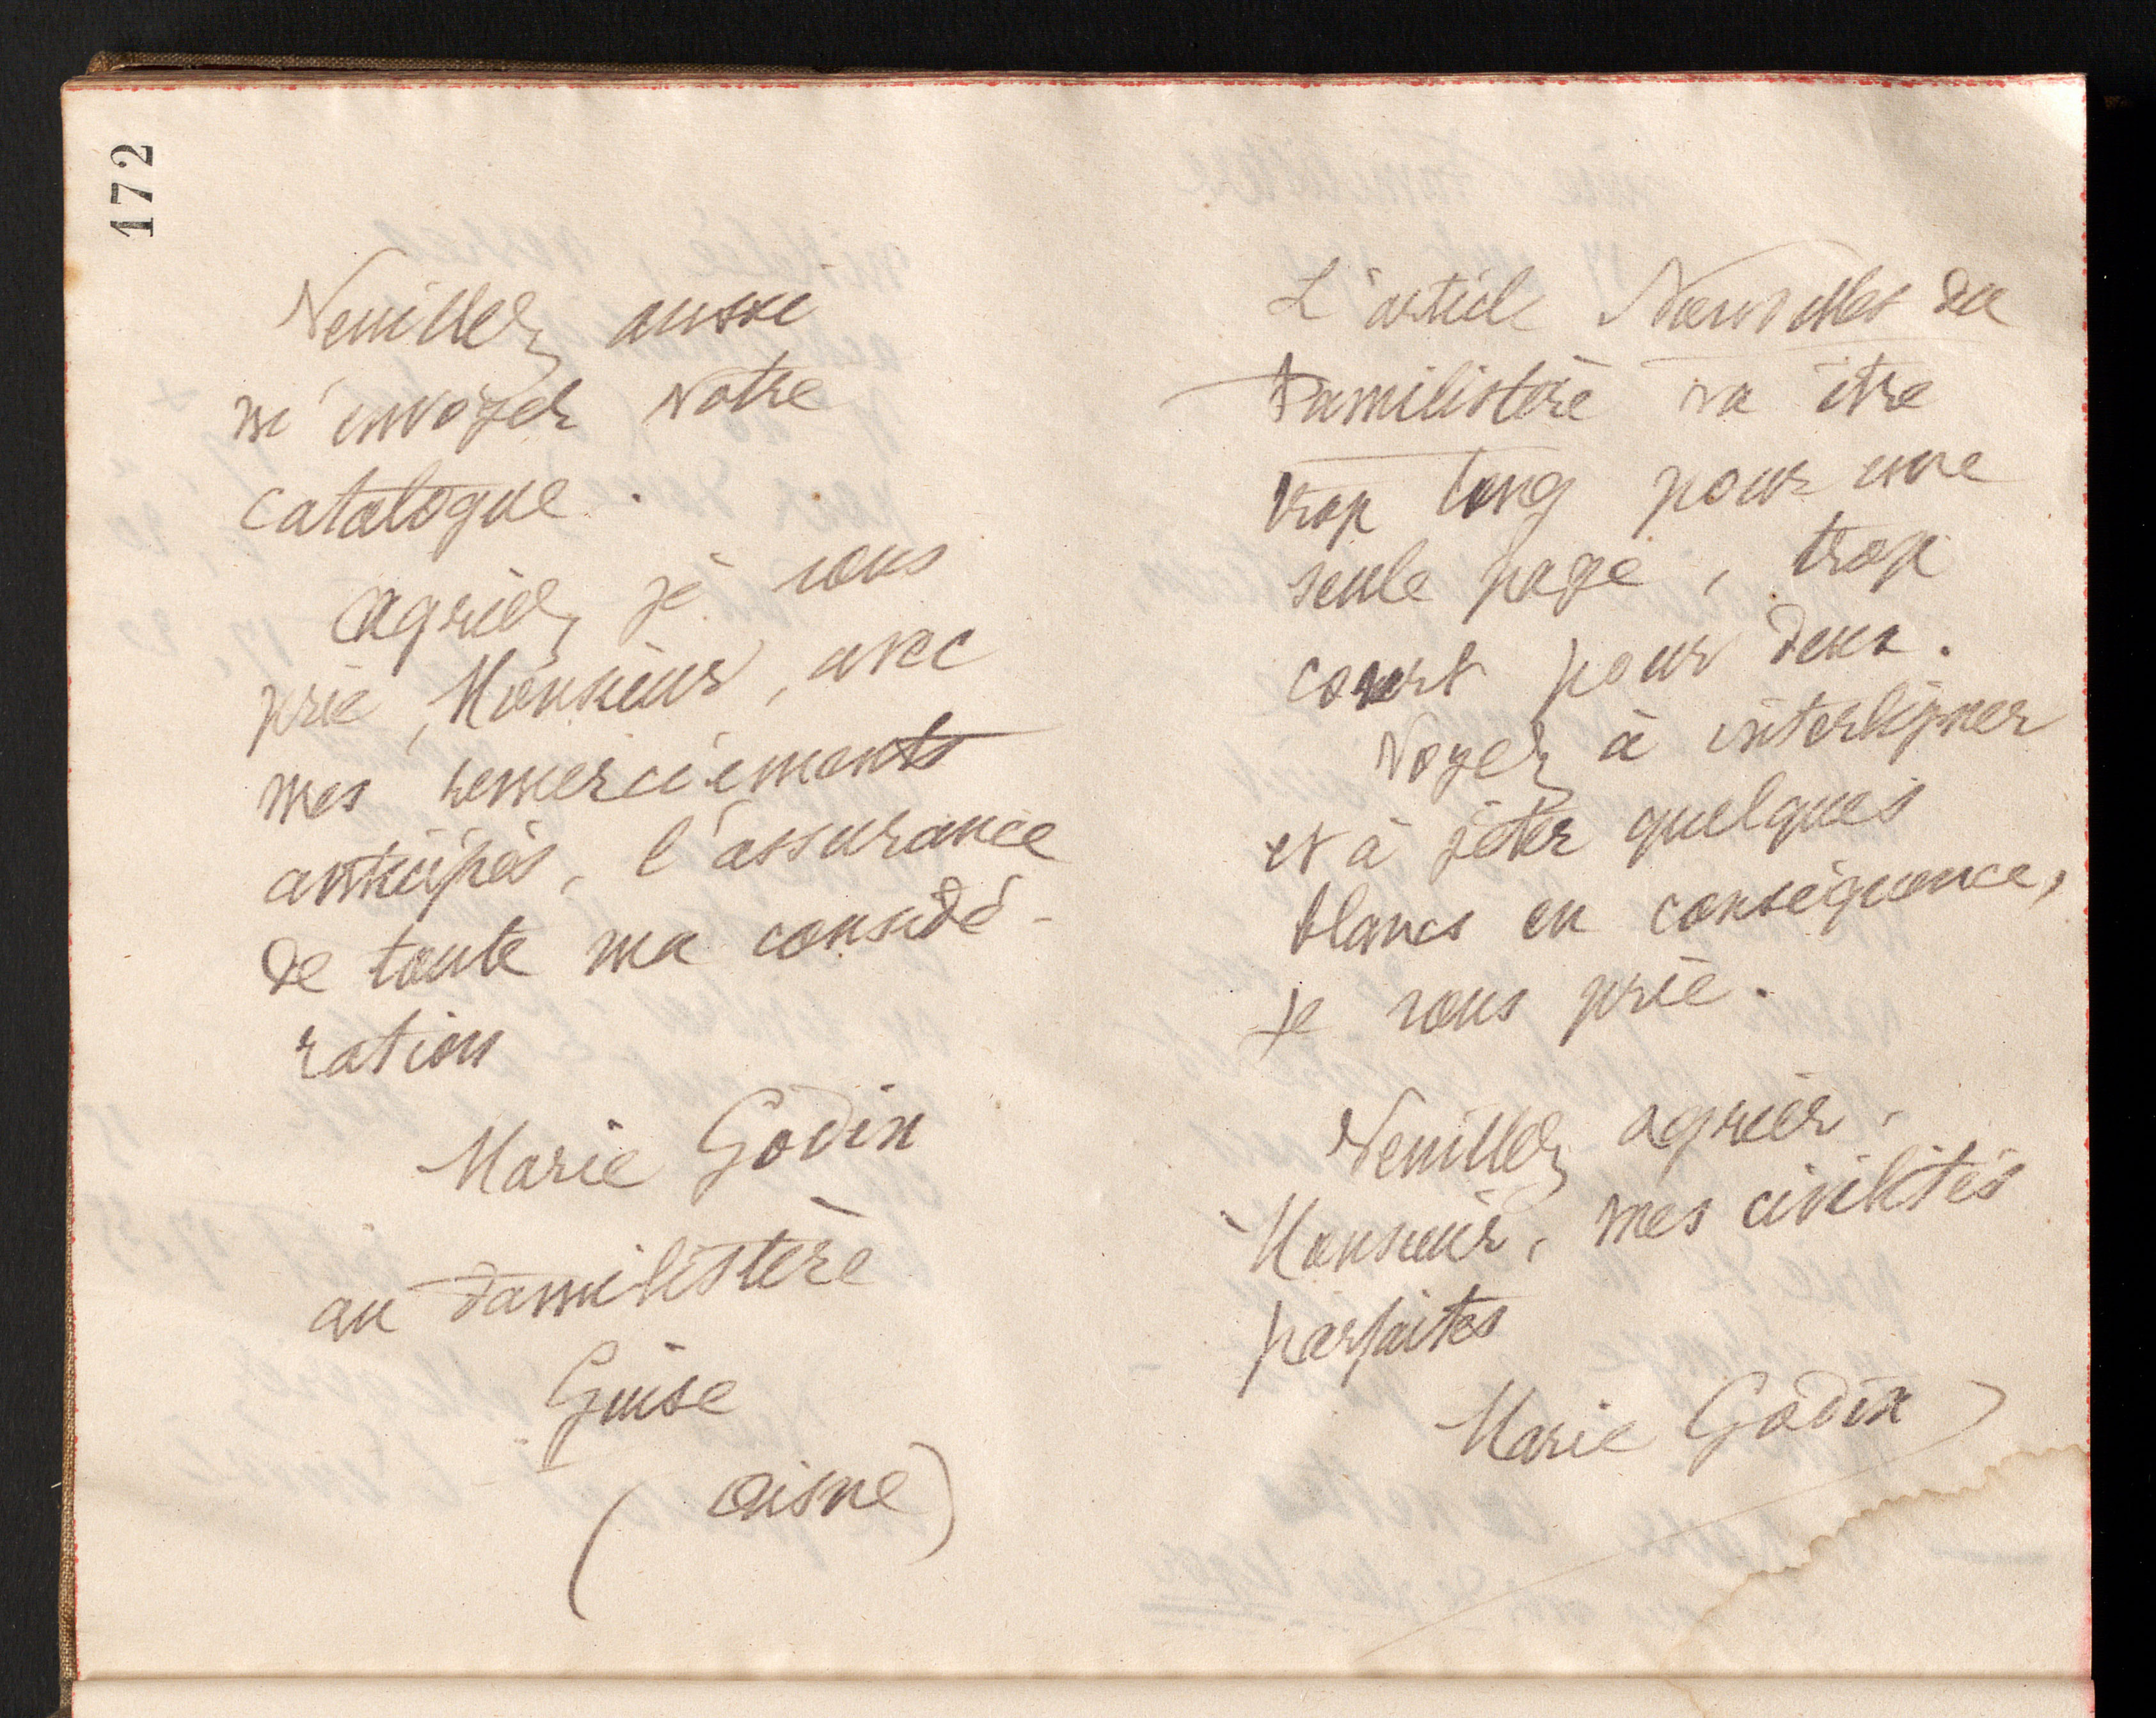 172
Veuillez aussi
m'envoyer votre
catalogue.
Agréez, je vous
prie, Monsieur, avec
mes remerciements
anticipés, l'assurance
de toute ma considé-
ration
Marie Godin
au Familistère
Guise
(Aisne)
L'article Nouvelles du
Familistère va être
trop long pour une
seule page, trop
court pour deux.
Voyez à interligner
et à jeter quelques
blancs en conséquence,
je vous prie.
Veuillez agréer,
Monsieur, mes civilités
parfaites
Marie Godin